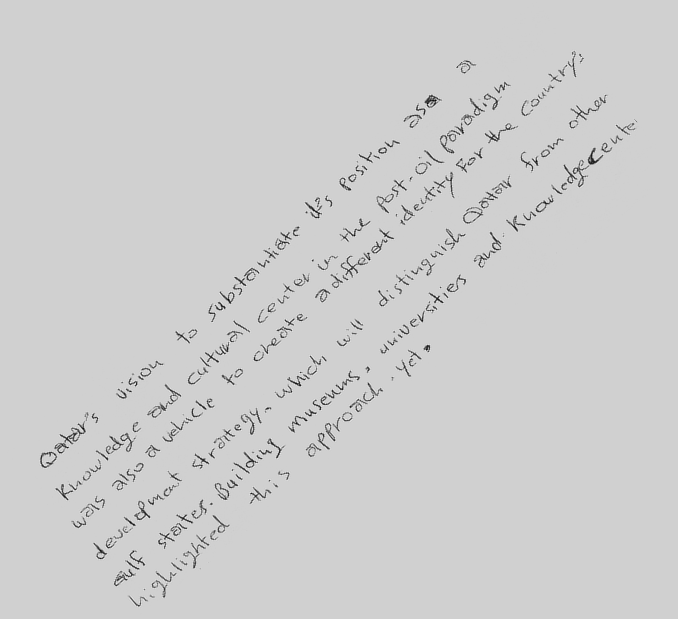 Qatar's vision to substantiate it's position as a
Knowledge and cultural center in the post-oil paradigm
was also a vehicle to create a different identity for the Country's
development straitegy, which will distinguish Qatar from other
Gulf states. Building museums, universities and Knowledge cente
highlighted this approach. yet.